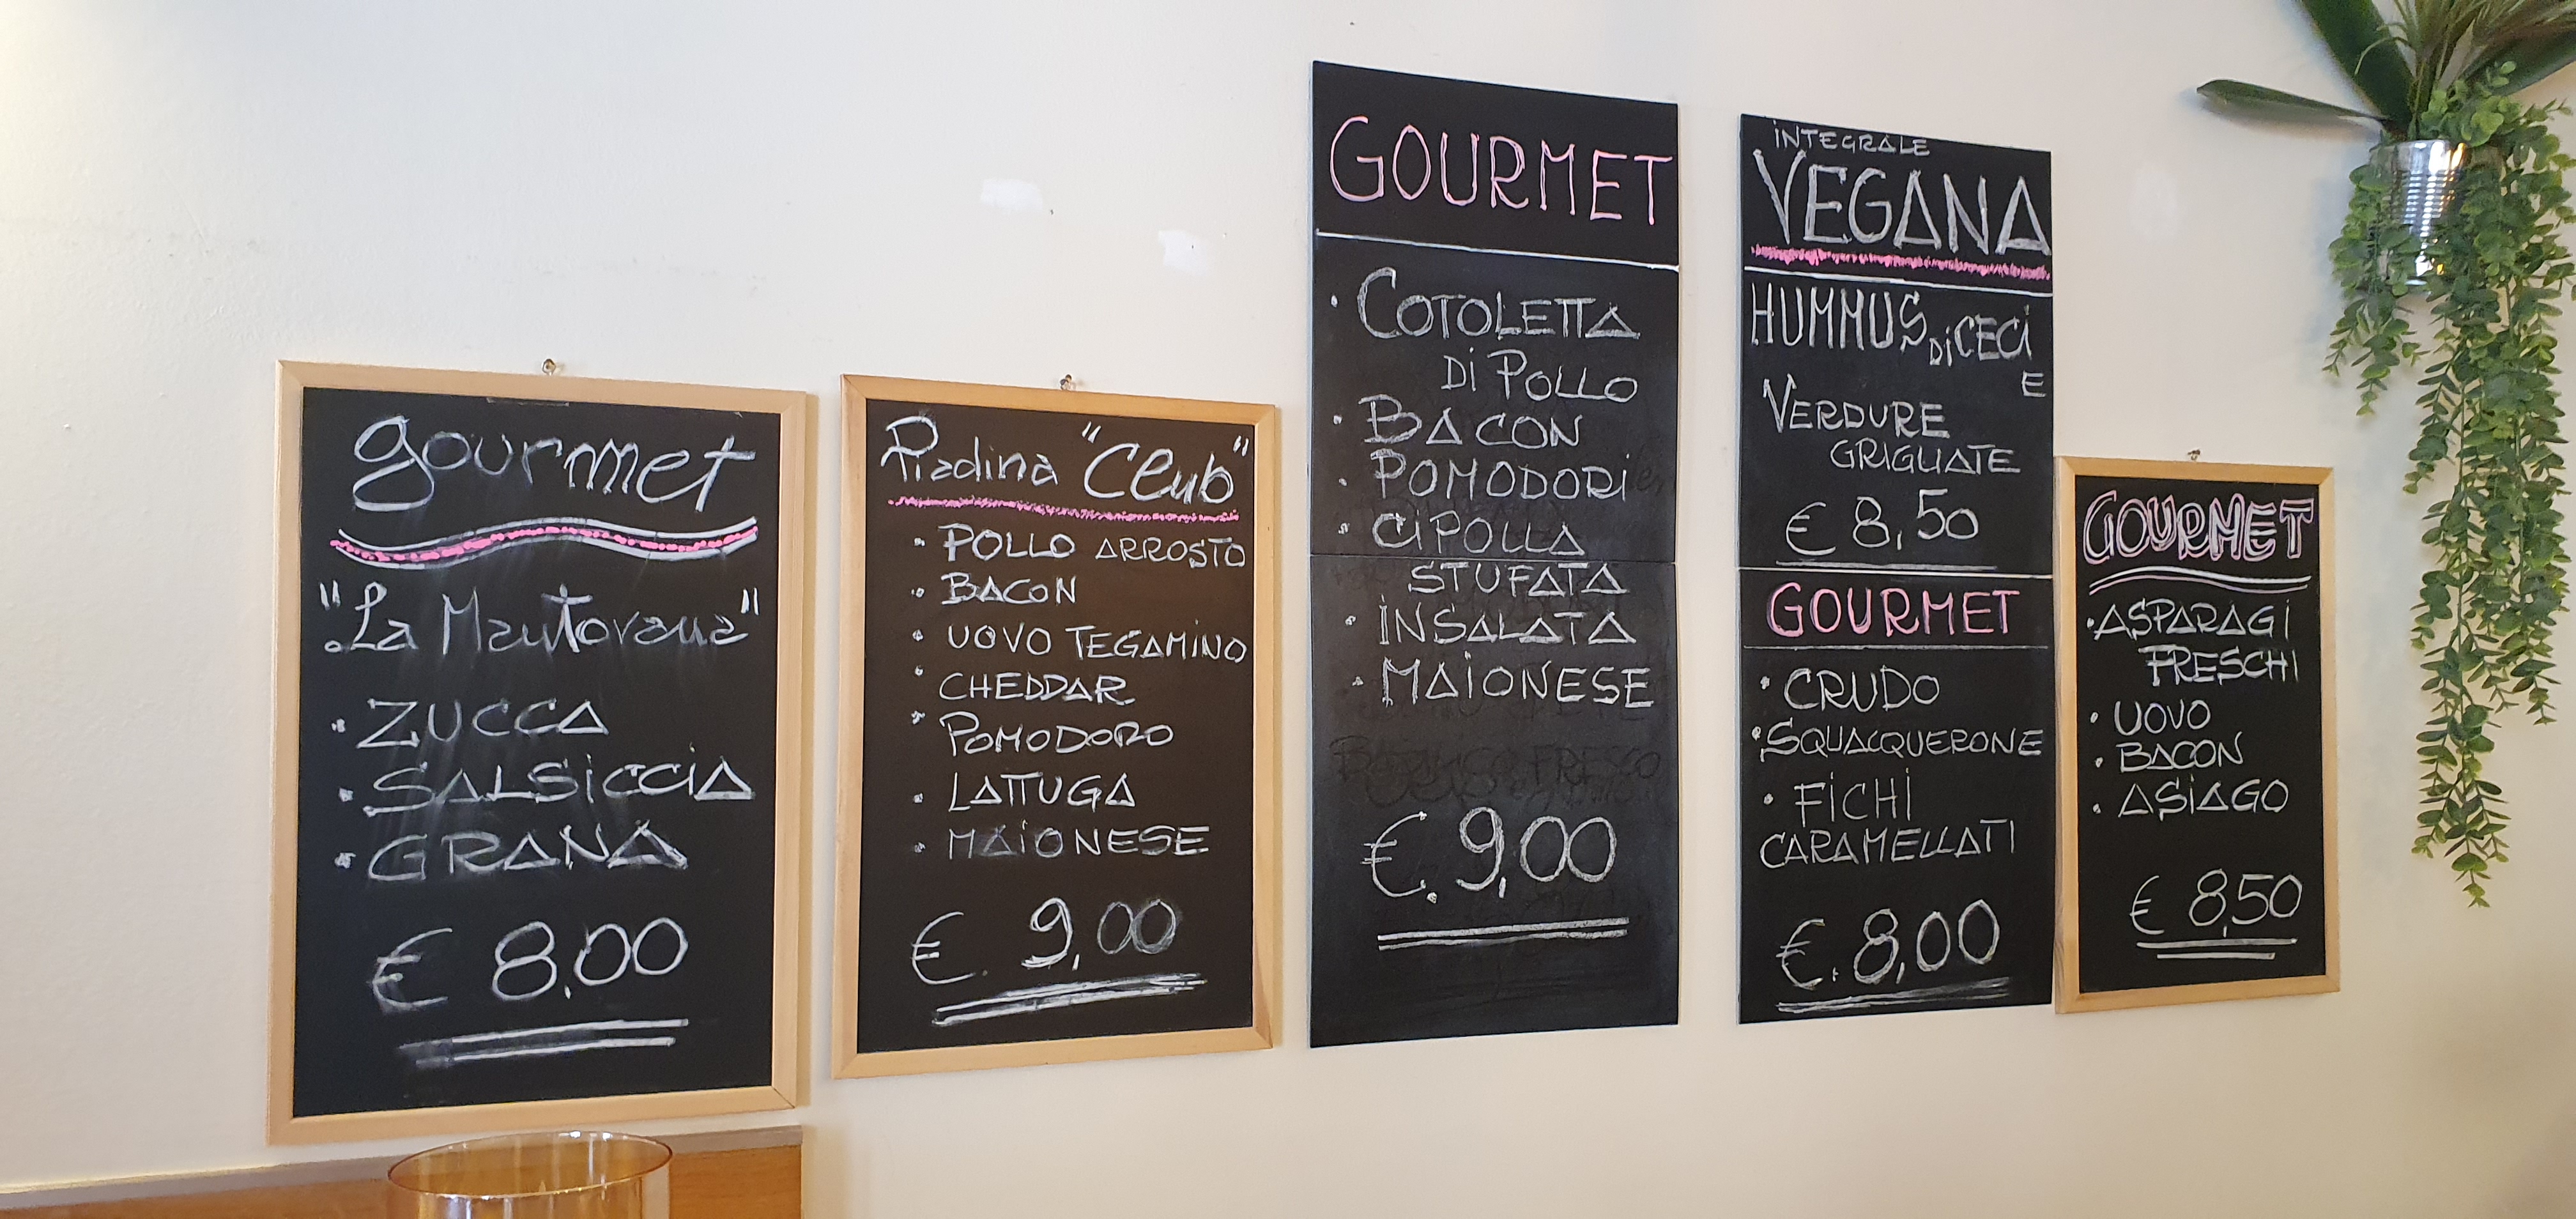 gourmet
"La Mantovana"
• ZUCCA
• SALSICCIA
• GRANA
€ 8,00
Piadina "Club"
• POLLO ARROSTO
• BACON
• UOVO TEGAMINO
• CHEDDAR
• POMODORO
• LATTUGA
• MAIONESE
€. 9,00
GOURMET
• COTOLETTA
DI POLLO
• BACON
• POMODORI
• CIPOLLA
STUFATA
• INSALATA
• MAIONESE
€. 9,00
INTEGRALE
VEGANA
HUMMUS DI CECI
E
VERDURE
GRIGLIATE
€ 8,50
GOURMET
• CRUDO
• SQUACQUERONE
• FICHI
CARAMELLATI
€. 8,00
GOURMET
• ASPARAGI
FRESCHI
• UOVO
• BACON
• ASIAGO
€ 8,50